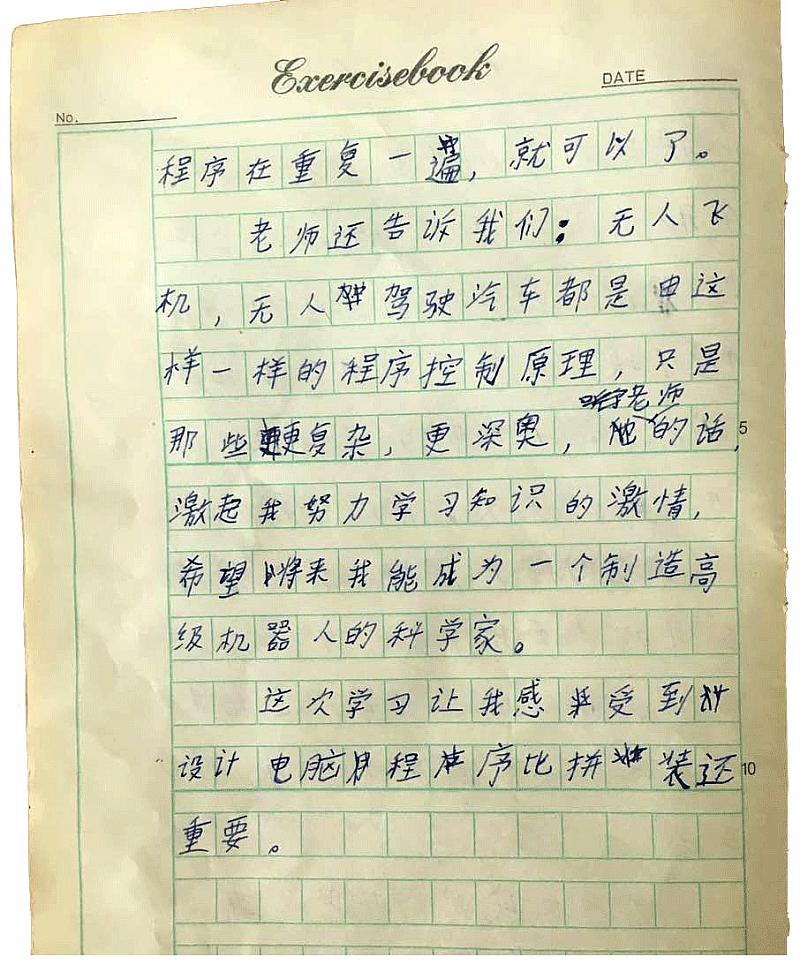 Exercisebook
DATE
No.
程序在重复一遍，就可以了。
老师还告诉我们：无人飞
机，无人驾驶汽车都是由这
样一样的程序控制原理，只是
老师
那些更复杂，更深奥，的话，
5
激起我努力学习知识的激情，
希望将来我能成为一个制造高
级机器人的科学家。
这次学习让我感受到
设计电脑程序比拼装还
10
重要。